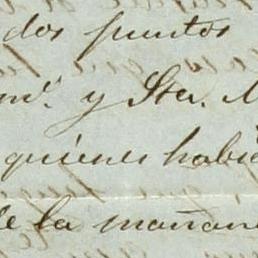 dos puntos
y Sta.
quienes habia
de la mañana